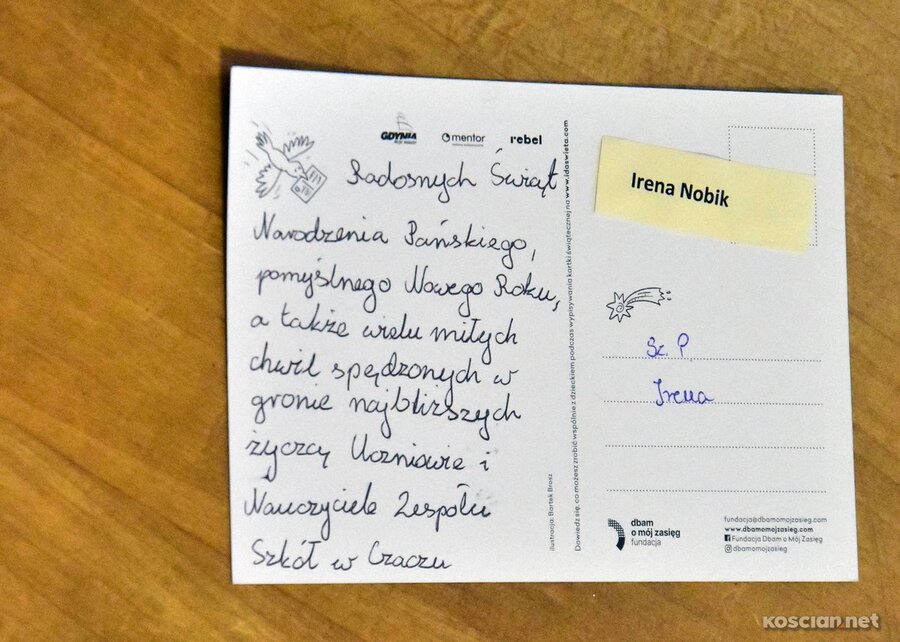 GDYNIA
mentor
rebel
Radosnych Świąt
Narodzenia Pańskiego,
pomyślnego Nowego Roku,
a także wielu miłych
chwil spędzonych w
gronie najbliższych
życzą Uczniowie i
Nauczyciele Zespołu
Szkół w Czaczu
ilustracja: Bartek Brosz
Dowiedz się, co możesz zrobić wspólnie z dzieckiem podczas wypisywania kartki świątecznej na www.idaswieta.com
Irena Nobik
Sz. P.
Irena
dbam
o mój zasięg
fundacja
fundacja@dbamomojzasieg.com
www.dbamomojzasieg.com
Fundacja Dbam o Mój Zasięg
@dbamomojzasieg
KOSCIAN.NET